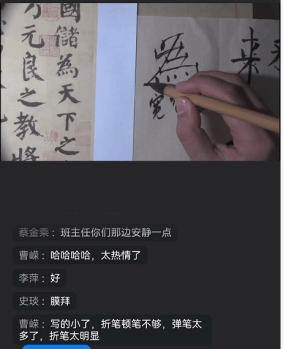 國儲為天下之
方元良之教將
為
寬
来
蔡金荣：班主任你们那边安静一点
曹嵘：哈哈哈哈，太热情了
李萍：好
史琰：膜拜
曹嵘：写的小了，折笔顿笔不够，弹笔太
多了，折笔太明显